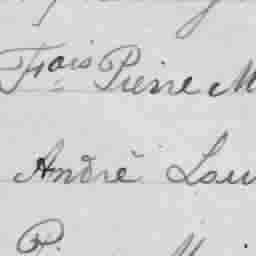 Frois Pierre M
André Lau